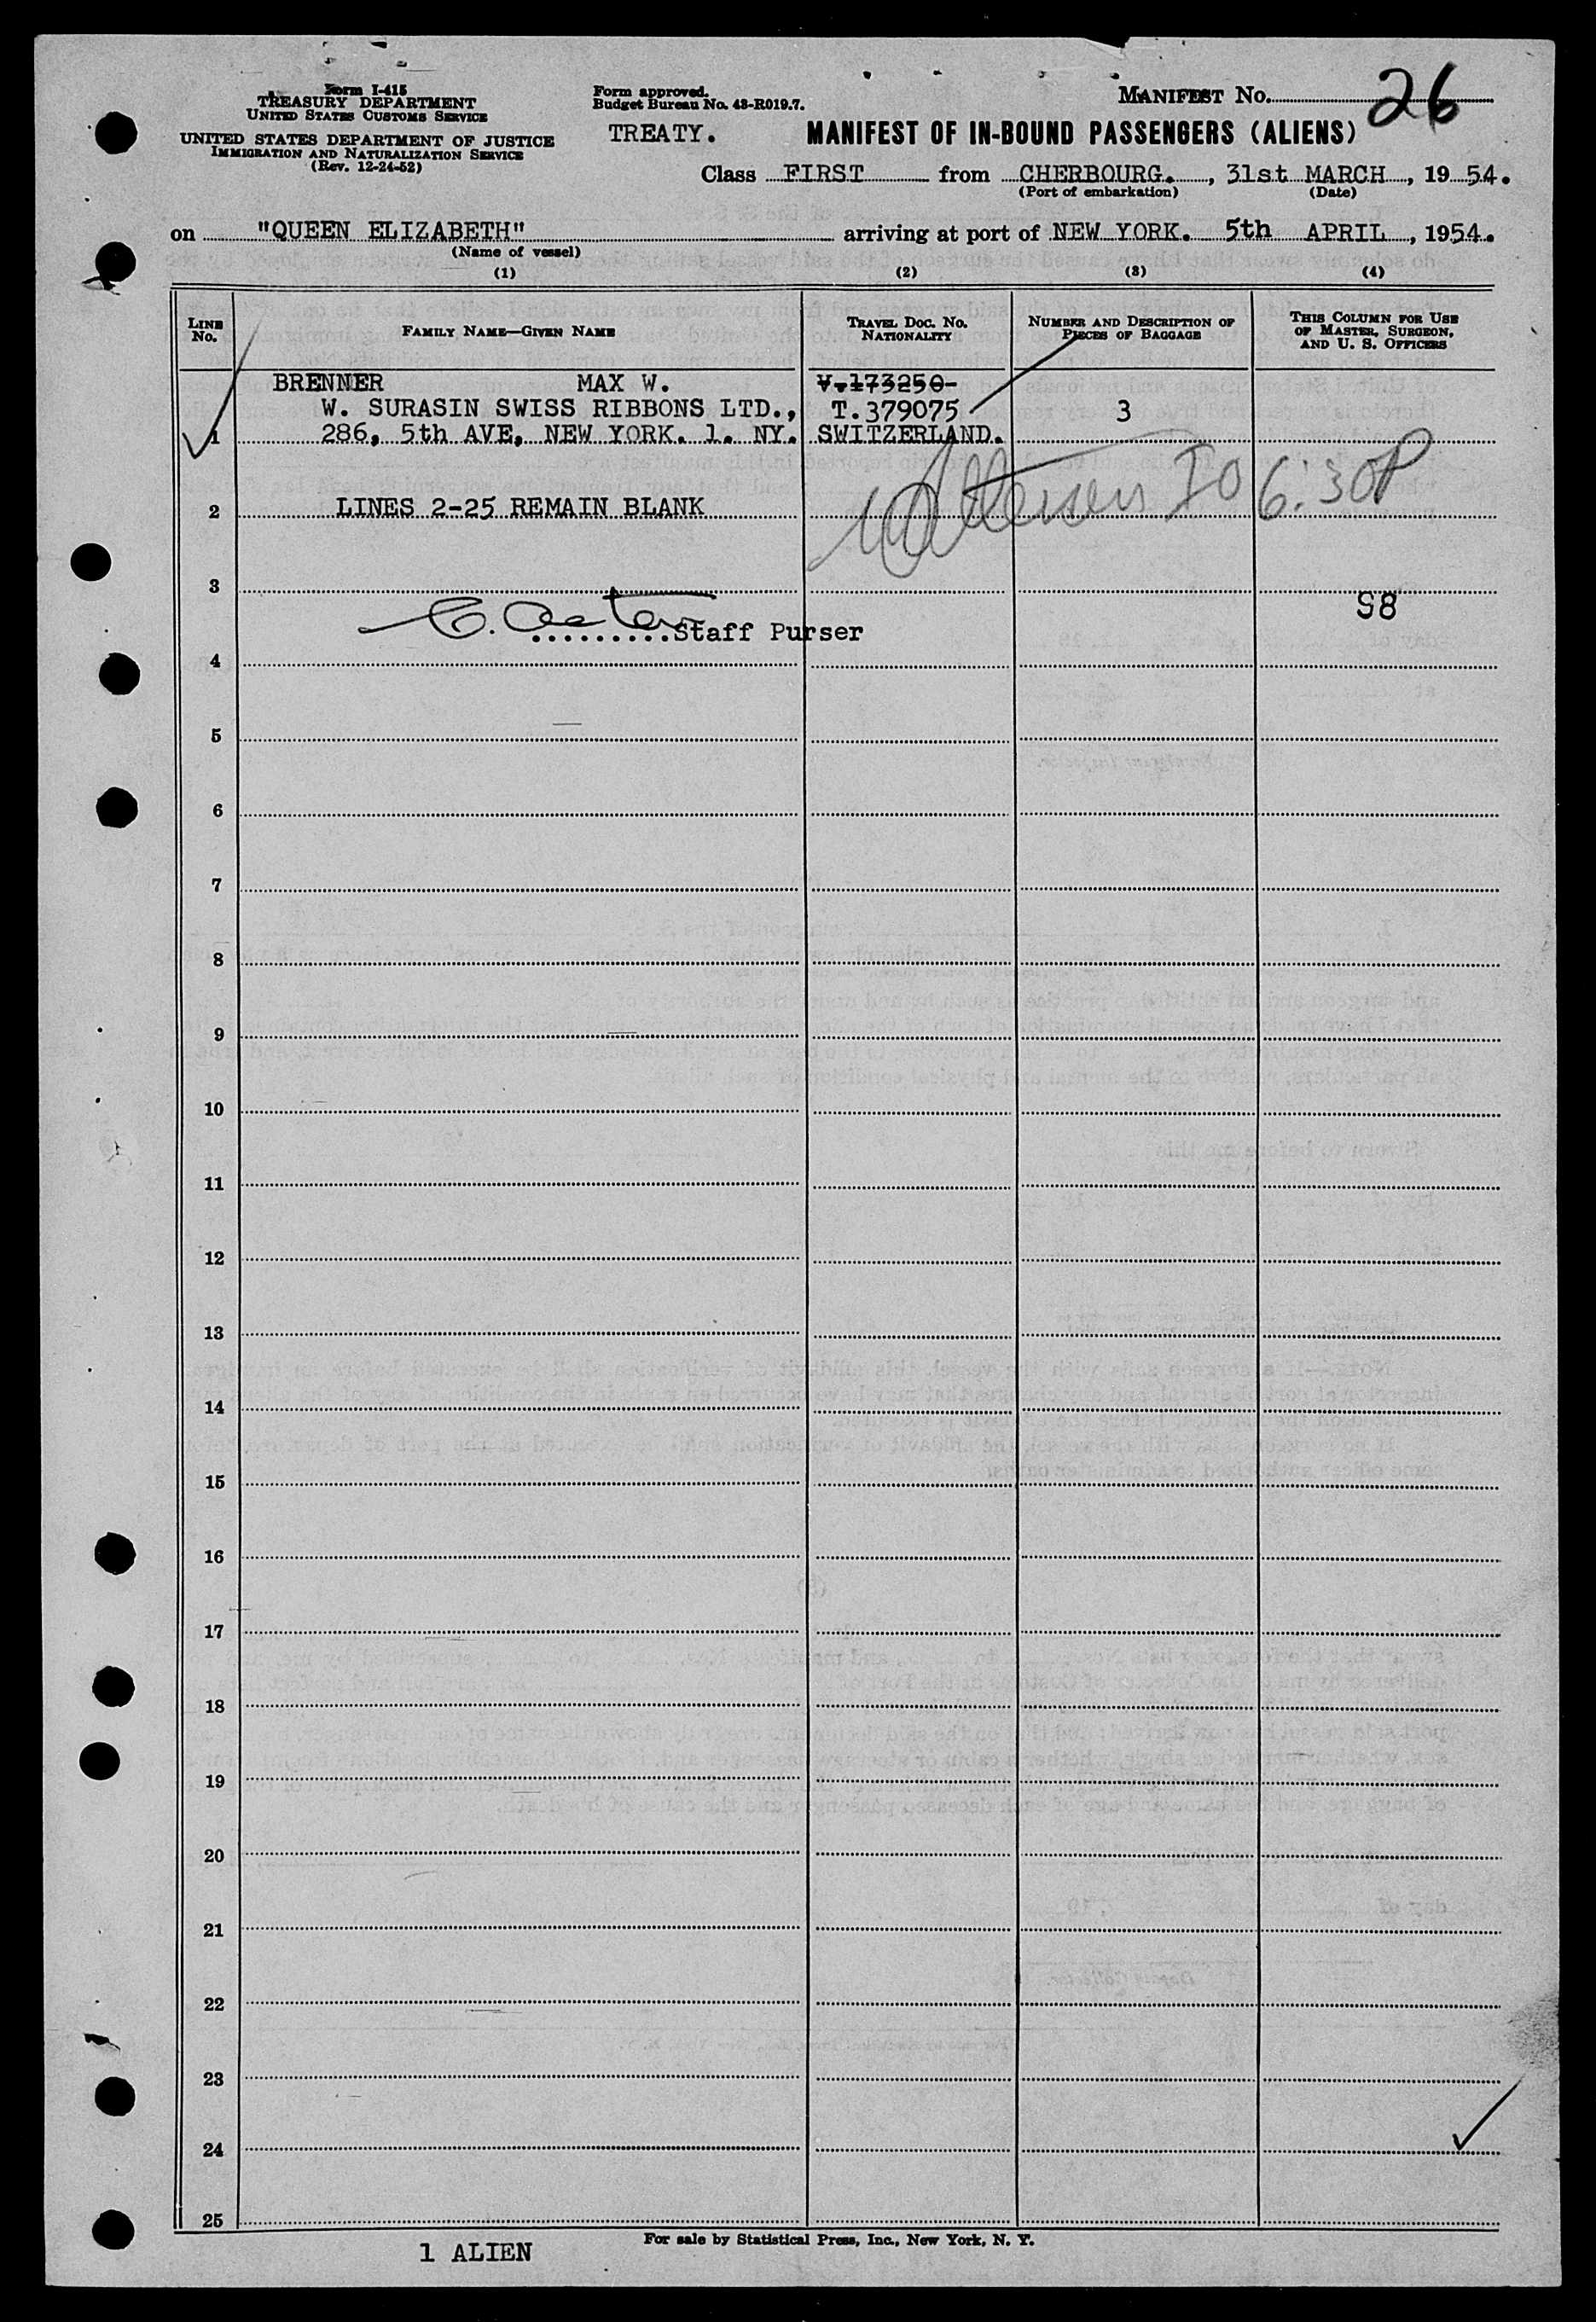 Form I-415
TREASURY DEPARTMENT
UNITED STATES CUSTOMS SERVICE
UNITED STATES DEPARTMENT OF JUSTICE
IMMIGRATION AND NATURALIZATION SERVICE
(Rev. 12-24-52)
Form approved.
Budget Bureau No. 43-R019.7.
TREATY.
MANIFEST NO. 26
MANIFEST OF IN-BOUND PASSENGERS (ALIENS)
Class FIRST from CHERBOURG. , 31st MARCH , 19 54.
(Port of embarkation) (Date)
on "QUEEN ELIZABETH" arriving at port of NEW YORK. 5th APRIL , 1954.
(Name of vessel)
(1) (2) (3) (4)
LINE NO. FAMILY NAME—GIVEN NAME TRAVEL DOC. NO. NATIONALITY NUMBER AND DESCRIPTION OF PIECES OF BAGGAGE THIS COLUMN FOR USE OF MASTER, SURGEON, AND U. S. OFFICERS
BRENNER MAX W. V.173250-
W. SURASIN SWISS RIBBONS LTD., T.379075 3
1 286, 5th AVE, NEW YORK. 1. NY. SWITZERLAND.
IO 6:30P
2 LINES 2-25 REMAIN BLANK
3
58
.........Staff Purser
4
5
6
7
8
9
10
11
12
13
14
15
16
17
18
19
20
21
22
23
24
25
For sale by Statistical Press, Inc., New York, N. Y.
1 ALIEN